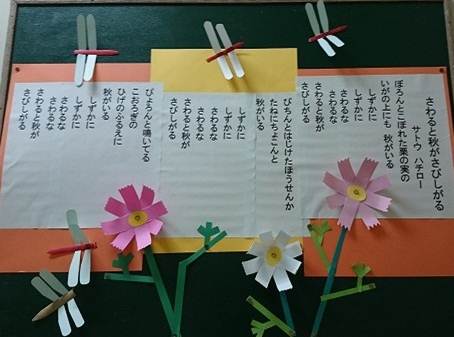 さわると秋がさびしがる
サトウ ハチロー
ぽろんとこぼれた栗の実の
いがの上にも 秋がいる
しずかに
しずかに
さわるな
さわるな
さわると秋が
さびしがる
ぴちんとはじけたほうせんか
たねにちょこんと
秋がいる
しずかに
しずかに
さわるな
さわるな
さわると秋が
さびしがる
ぴょろんと鳴いてる
こおろぎの
ひげのふるえに
秋がいる
しずかに
しずかに
さわるな
さわるな
さわると秋が
さびしがる